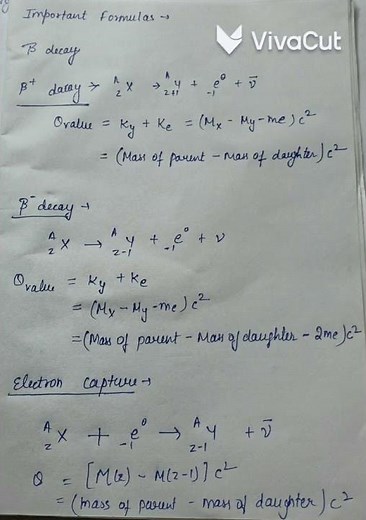 Important Formulas →
VivaCut
β decay
β⁺ decay → ᴬ_Z X → ᴬ_Z+1 Y + ₋₁e⁰ + ν̄
Qvalue = Ky + Ke = (Mx - My - me) c²
= (Mass of parent - Mass of daughter) c²
β⁻ decay →
ᴬ_Z X → ᴬ_Z-1 Y + ₋₁e⁰ + ν
Qvalue = Ky + Ke
= (Mx - My - me) c²
= (Mass of parent - Mass of daughter - 2me) c²
Electron Capture →
ᴬ_Z X + ₋₁e⁰ → ᴬ_Z-1 Y + ν̄
Q = [M(z) - M(z-1)] c²
= (mass of parent - mass of daughter) c²